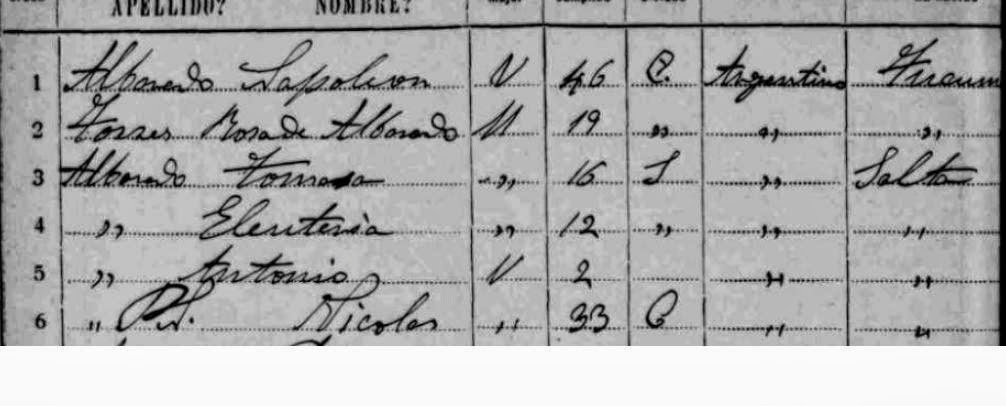 APELLIDO? NOMBRE?
1 Alborado Napoleon V 46 C. Argentino Tucum
2 Torres Rosa de Alborado M 19 " " "
3 Alborado Tomasa " 16 S " Salta
4 " Eleuteria " 12 " " "
5 " Antonio V 2 " "
6 " Nicolas " 33 C " "